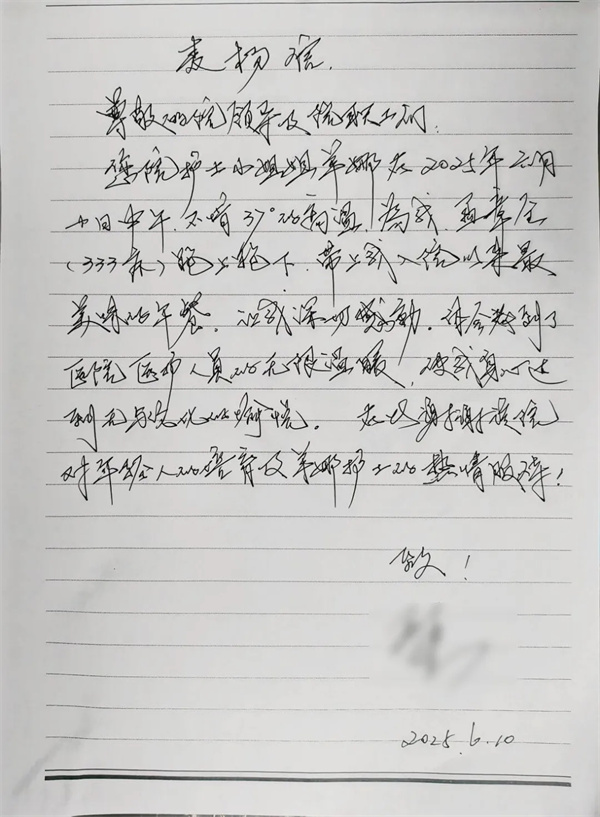 表扬信
尊敬的院领导及院职工们:
贵院护士小姐姐羊娜在2025年六月
十日中午,不啻37°的高温,为我
(333床)跑上跑下,带上我入院以来最
美味的午餐,让我深切感动,体会到了
医院医护人员的无限温暖,使我身心达
到无与伦比的愉悦。在此谢谢贵院
对年轻人的培养及羊娜护士的热情服务!
致!
2025.6.10